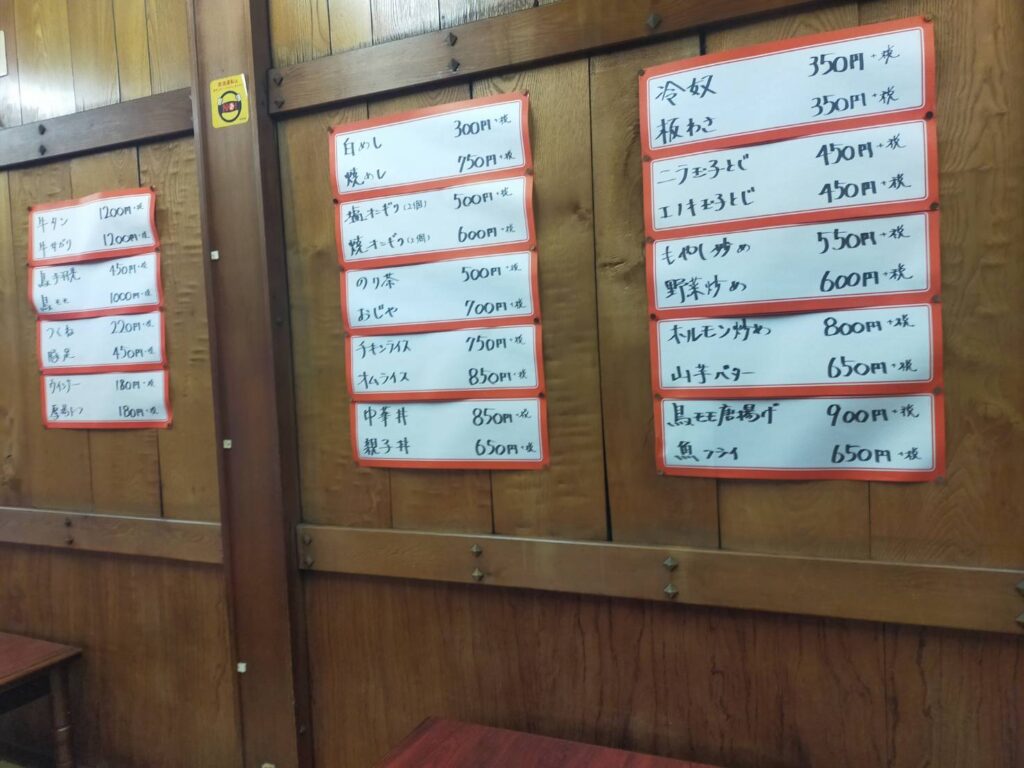 牛タン 1200円+税
牛サガリ 1200円+税
鳥手羽先 450円+税
鳥モモ 1000円+税
つくね 220円+税
豚足 450円+税
ウインナー 180円+税
厚揚トフ 180円+税
白めし 300円+税
焼めし 750円+税
塩オニギリ(2個) 500円+税
焼オニギリ(2個) 600円+税
のり茶 500円+税
おじや 700円+税
チキンライス 750円+税
オムライス 850円+税
中華丼 850円+税
親子丼 650円+税
冷奴 350円+税
板わさ 350円+税
ニラ玉子とじ 450円+税
エノキ玉子とじ 450円+税
もやし炒め 550円+税
野菜炒め 600円+税
ホルモン炒め 800円+税
山芋バター 650円+税
鳥モモ唐揚げ 900円+税
魚フライ 650円+税